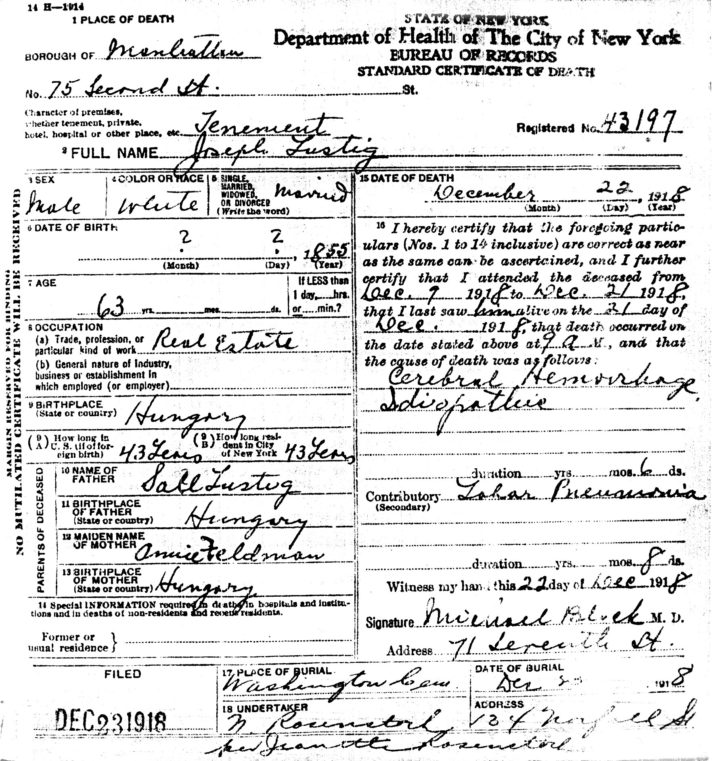 14 H-1914
1 PLACE OF DEATH
STATE OF NEW YORK
Department of Health of The City of New York
BUREAU OF RECORDS
STANDARD CERTIFICATE OF DEATH
BOROUGH OF Manhattan
No. 75 Second St. St.
Character of premises,
whether tenement, private,
hotel, hospital or other place, etc. Tenement
Registered No. 43197
2 FULL NAME Joseph Lustig
MARGIN RESERVED FOR BINDING
NO MUTILATED CERTIFICATE WILL BE RECEIVED
3 SEX
Male
4 COLOR OR RACE
White
5 SINGLE,
MARRIED,
WIDOWED,
OR DIVORCED
(Write the word)
Married
6 DATE OF BIRTH
? ? 1855
(Month) (Day) (Year)
7 AGE
63 yrs. mos. ds.
If LESS than
1 day, hrs.
or min.?
8 OCCUPATION
(a) Trade, profession, or
particular kind of work Real Estate
(b) General nature of Industry,
business or establishment in
which employed (or employer)
9 BIRTHPLACE
(State or country) Hungary
(9 A) How long in
U. S. (if of for-
eign birth) 43 Years
(9 B) How long resi-
dent in City
of New York 43 Years
PARENTS OF DECEASED
10 NAME OF
FATHER Lustig
11 BIRTHPLACE
OF FATHER
(State or country) Hungary
12 MAIDEN NAME
OF MOTHER Annie Feldman
13 BIRTHPLACE
OF MOTHER
(State or country) Hungary
14 Special INFORMATION required in deaths in hospitals and institu-
tions and in deaths of non-residents and recent residents.
Former or
usual residence }
15 DATE OF DEATH
December 22, 1918
(Month) (Day) (Year)
16 I hereby certify that the foregoing partic-
ulars (Nos. 1 to 14 inclusive) are correct as near
as the same can be ascertained, and I further
certify that I attended the deceased from
Dec. 9 1918 to Dec. 21 1918,
that I last saw him alive on the 21 day of
Dec. 1918, that death occurred on
the date stated above at 9 A M., and that
the cause of death was as follows:
Cerebral Hemorrhage
Idiopathic
duration yrs. mos. 6 ds.
Contributory
(Secondary) Lobar Pneumonia
duration yrs. mos. 8 ds.
Witness my hand this 22 day of Dec 1918
Signature Michael Block M. D.
Address 71 Seventh St.
FILED
DEC 23 1918
17 PLACE OF BURIAL
Washington Cem
DATE OF BURIAL
Dec 1918
18 UNDERTAKER
N. Rosenstock
ADDRESS
134 St
per Jeanette Rosenstock